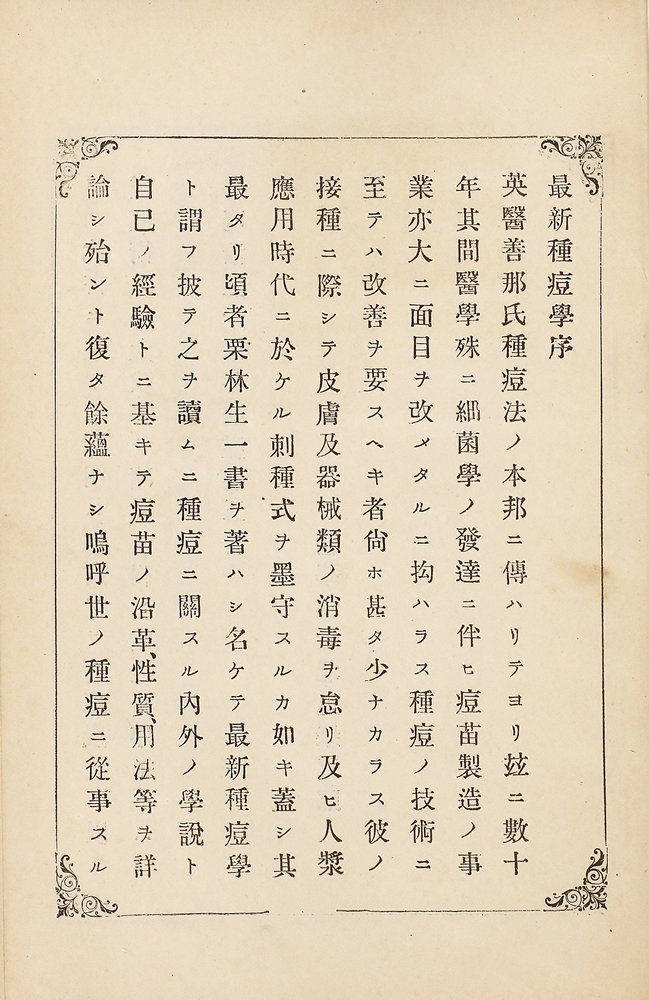 最新種痘學序
英醫善那氏種痘法ノ本邦ニ傳ハリテヨリ玆ニ數十
年其間醫學殊ニ細菌學ノ發達ニ伴ヒ痘苗製造ノ事
業亦大ニ面目ヲ改メタルニ拘ハラス種痘ノ技術ニ
至テハ改善ヲ要スヘキ者尙ホ甚タ少ナカラス彼ノ
接種ニ際シテ皮膚及器械類ノ消毒ヲ怠リ及ヒ人漿
應用時代ニ於ケル刺種式ヲ墨守スルカ如キ蓋シ其
最タリ頃者栗林生一書ヲ著ハシ名ケテ最新種痘學
ト謂フ披テ之ヲ讀ムニ種痘ニ關スル內外ノ學說ト
自己ノ經驗トニ基キテ痘苗ノ沿革、性質、用法等ヲ詳
論シ殆ント復タ餘蘊ナシ嗚呼世ノ種痘ニ從事スル